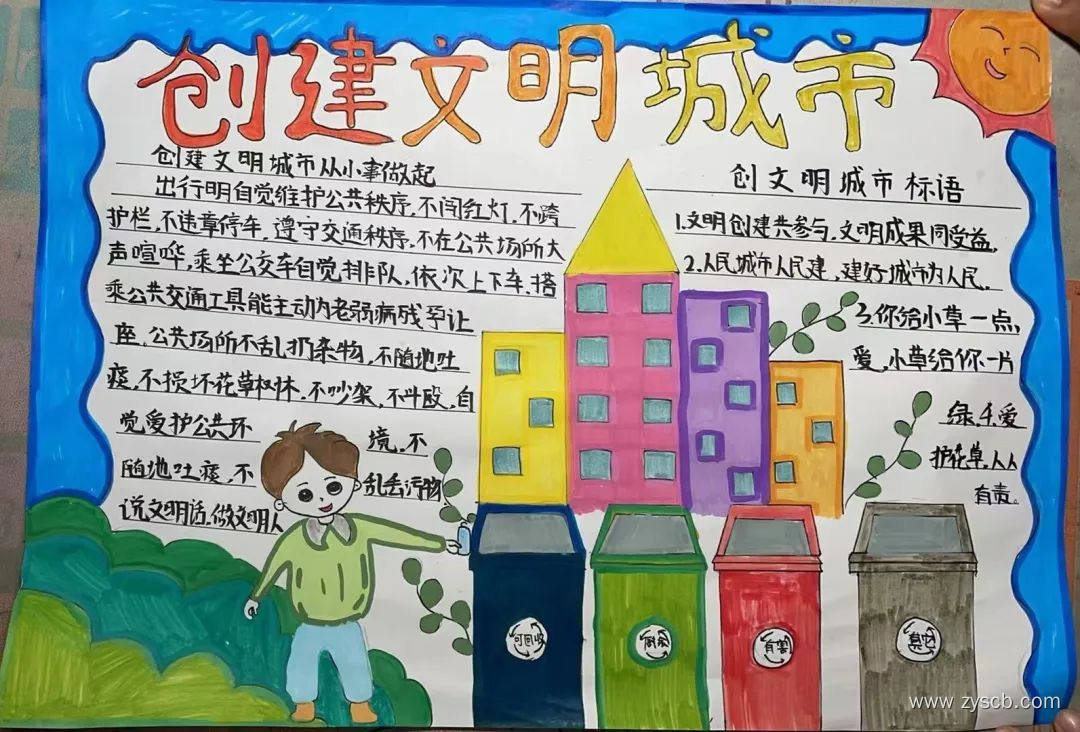 创建文明城市
创建文明城市从小事做起
出行明自觉维护公共秩序,不闯红灯,不跨
护栏,不违章停车,遵守交通秩序,不在公共场所大
声喧哗,乘坐公交车自觉排队,依次上下车,搭
乘公共交通工具能主动为老弱病残孕让
座,公共场所不乱扔杂物,不随地吐
痰,不损坏花草树林,不吵架,不斗殴,自
觉爱护公共环
境,不
随地吐痰,不
乱丢污物
说文明话,做文明人
创文明城市标语
1.文明创建共参与,文明成果同受益,
2.人民城市人民建,建好城市为人民,
3.你给小草一点,
爱,小草给你一片
绿,4.爱
护花草,人人
有责。
可回收
厨余
有害
其它
www.zyscb.com